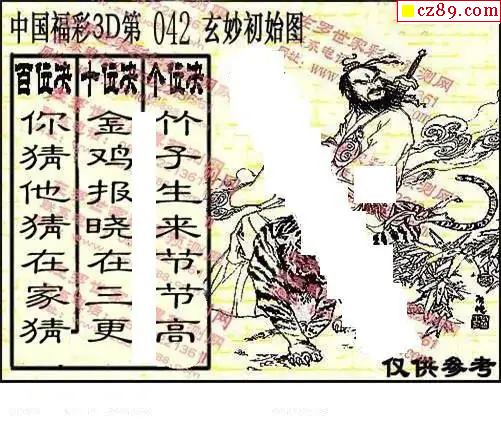 cz89.com
中国福彩3D第 042 玄妙初始图
百位决 十位决 个位决
你猜他猜在家猜
金鸡报晓在三更
竹子生来节节高
仅供参考